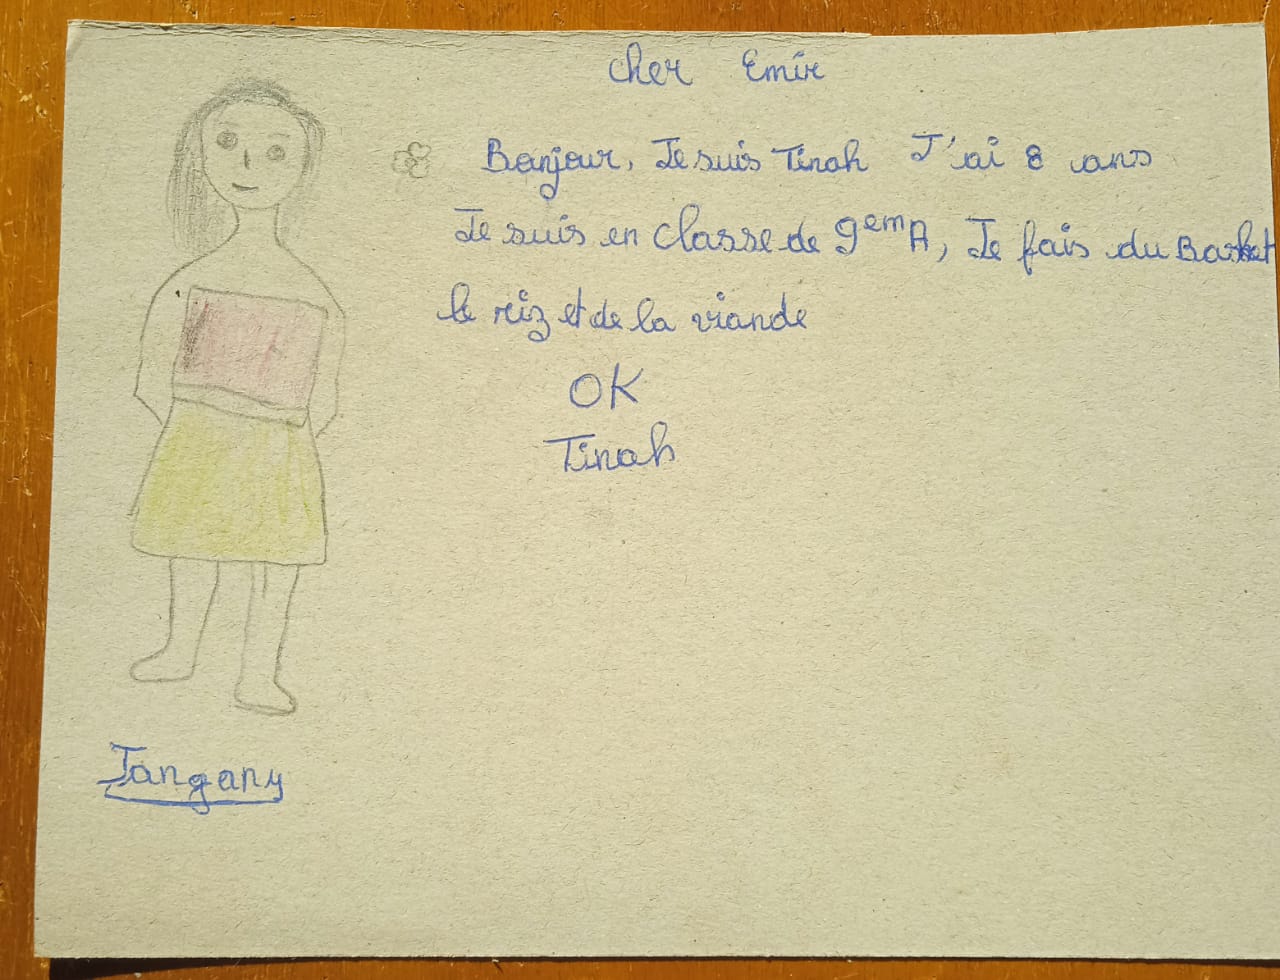 cher Emir
Bonjour, Je suis Tinah J'ai 8 ans
Je suis en classe de 9emA, Je fais du Basket
le riz et de la viande
OK
Tinah
Tangany